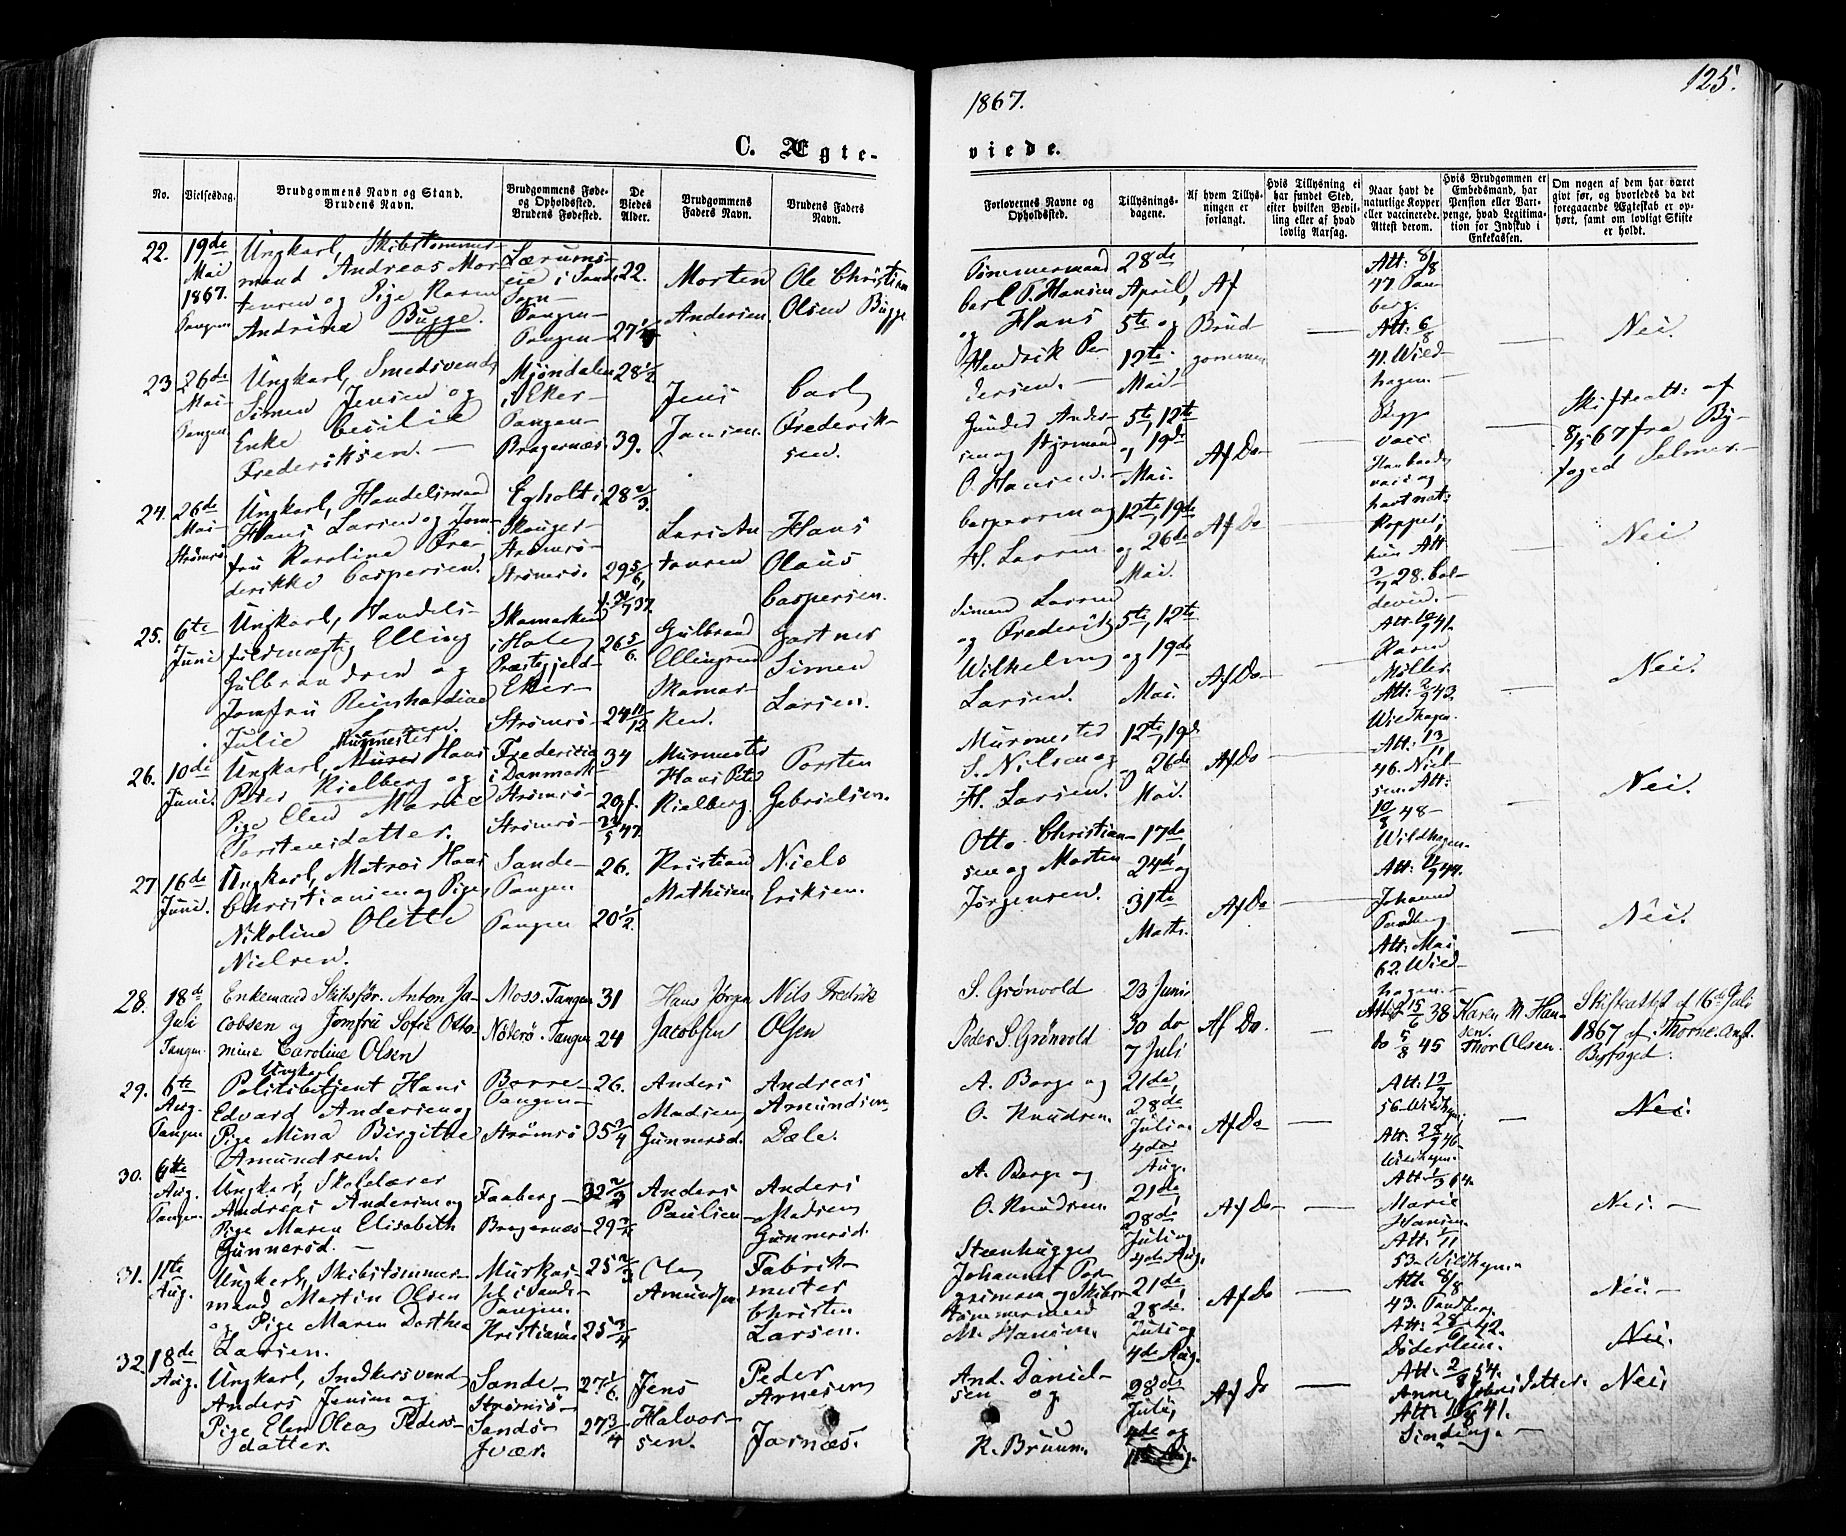 125.
1867.
C. Ægte-
viede.
No.
Vielsesdag.
Brudgommens Navn og Stand.
Brudens Navn.
Brudgommens Føde-
og Opholdssted.
Brudens Fødested.
De
Viedes
Alder.
Brudgommens
Faders Navn.
Brudens Faders
Navn.
Forlovernes Navne og
Opholdssted.
Tillysnings-
dagene.
Af hvem Tillys-
ningen er
forlangt.
Hvis Tillysning ei
har fundet Sted,
efter hvilken Bevil-
ling eller af hvad
lovlig Aarsag.
Naar havt de
naturlige Kopper
eller vaccinerede.
Attest derom.
Hvis Brudgommen er
Embedsmand, har
Pension eller Vart-
penge, hvad Legitima-
tion for Indskud i
Enkekassen.
Om nogen af dem har været
givt før, og hvorledes da det
foregaaende Ægteskab er op-
hørt, samt om lovligt Skifte
er holdt.
22.
19de
Mai
1867.
Tangen
Ungkarl, Skibstømmer-
mand Andreas Mor-
tensen og Pige Karen
Andrine Bugge.
Tangen-
Tangen-
22.
Morten
Andersen.
Ole Christian
Olsen Bugge
Tømmermand
Carl P. Hansen
og Hans
Hendrik Pe-
dersen.-
28de
April,
5te og
12te
Mai-
Af
Brud
gommen
Att: 8/8
Att: 6/8
41. Wied-
hagen.-
Nei.
23
26de
Mai-
Tangen
Ungkarl, Smedsvend
Simen Jensen og
Enke Cecilie
Frederiksen.-
Mjøndalen
i Eker-
Tangen-
Bragernæs.
28 1/2
39.
Jens
Jansen.
Carl
Frederik-
sen.
Gunder Ander-
sen og Styrmand
O. Hansen.-
5te, 12te
og 19de
Mai.
Af Do
Begge
vacc
Skifteatt: af
8/5 67 fra By-
foged Selmer.-
24.
26de
Mai-
Strømsø
Ungkarl, Handelsmand
Hans Larsen og Jom-
fru Karoline Fre-
derikke Caspersen.
Egholt i
Skoger-
Strømsø-
Strømsø.
28 2/3.
29 5/6,
Lars An
tonsen
Hans
Olaus
Caspersen.
Caspersen og
H. Larsen.
12te, 19de
og 26de
Mai.
Af Do
havt nat:
Kopper,
hun Att
Nei
25.
6te
Juni
Ungkarl, Handels-
fuldmægtig Elling
Gulbrandsen og
Jomfru Reinhardine
Julie Larsen.
Skamarken
i Hole
Præstegjeld-
Eker-
Strømsø-
26 5/6.
24 11/12
Gulbrand
Ellingsen
Skamar-
ken.
Gartner
Simen
Larsen.
Simen Larsen
og Frederik
Wilhelm
Larsen.
5te, 12te
og 19de
Mai.
Af Do
Att: 10/9 41.
Karen
Møller.
Att: 2/9 43.
Wiedhagen.
Nei.
26.
10de
Juni.
Murmester
Ungkarl, Murer Hans
Peter Kielberg og
Pige Elen Maria
Torstensdatter.
Fredericia
i Danmark-
Strømsø-
Strømsø-
34
20 f.
23/5 47.
Murmester
Hans Peter
Kielberg
Torsten
Gabrielsen.
Murmester
S. Nielsen og
H. Larsen.
12te, 19de
og 26de
Mai.
Af Do
Att: 13/11
46. Niel-
sen. Att:
10/8 48-
Wiedhagen.
Nei.
27
16de
Juni.
Ungkarl, Matros Hans
Christiansen og Pige
Nikoline Olette
Nielsen.
Sande-
Tangen
Tangen
26.
20 1/2.
Kristian
Mathisen.
Niels
Eriksen.
Otto Christian-
sen og Morten
Jørgensen.
17de
24de og
31te
Marts.
Af Do
Johanne
Tandberg
Att: Mai
62. Wied-
hagen.-
Nei.
28.
18de
Juli
Tangen
Enkemand Skibsfør. Anton Ja-
cobsen og Jomfru Sofie Otto-
mine Caroline Olsen
Moss. Tangen
Nøterø. Tangen
31
24
Hans Jørgen
Jacobsen
Nils Fredrik
Olsen
S. Grønvold
Peder S. Grønvold
23 Juni
30 do
7 Juli
Af Do.
Att: 15/6 38
do 5/8 45
Karen M. Han-
sen.
Thor Olsen.
Skifteattest af 16de Juli
1867 af Thorne Const.
Byfoged.
29.
6te
Aug.
Tangen
Ungkarl
Politibetjent Hans
Edvard Andersen og
Pige Mina Birgithe
Amundsen.
Borre-
Tangen-
Strømsø
26.
35 3/4
Anders
Madsen
Gunnersd.
Andreas
Amundsen
Dæle.
A. Borge og
O. Knudsen.
21de,
28de
Juli og
4de
Aug.
Af Do
Att: 12/7
56. Wiedhagen;
Att: 28/9 46-
Wiedhagen.
Nei.
30.
6te
Aug.
Tangen.
Ungkarl, Skolelærer
Andreas Andersen og
Pige Maren Elisabeth
Gunnersd.-
Faaberg-
Bragernæs-
32 2/3
Anders
Paulsen-
Anders
Madsen
Gunnersd.
A. Borge og
O. Knudsen.
21de,
28de
Juli og
4de Aug.
Af Do-
Marie
Hansen.
53. Wiedhagen.
Nei.-
31.
11te
Aug.
Ungkarl, Skibstømmer-
mand Martin Olsen
og Pige Maren Dorthea
Larsen.
Kristiania
25 2/3
25 3/4
Ole
Amundsen
Fabrik-
mester
Christen
Larsen.
Steenhugger
Johannes
tømmermand
M. Hansen.
21de
28de,
Juli og
4de Aug.
Af Do
Att. 8/8
43. Tandberg.
Att: 28/6 42.
Döderlein.
Nei.-
Nei.
32.
18de
Aug.
Ungkarl, Snedkersvend
Anders Jensen og
Pige Elen Olea Peders-
datter.
Sande-
Strømsø-
Sandø-
Svær.
27 1/6
27 3/4
Jens
Halvor-
sen.
Peder
Arnesen
Jarnæs.
And. Daniel-
sen og
K. Bruun.
28de
Juli,
4de og
11te Aug.
Af Do
Att: 2/8 54.
Att: 16/8 41.
Sinding.-
Nei.